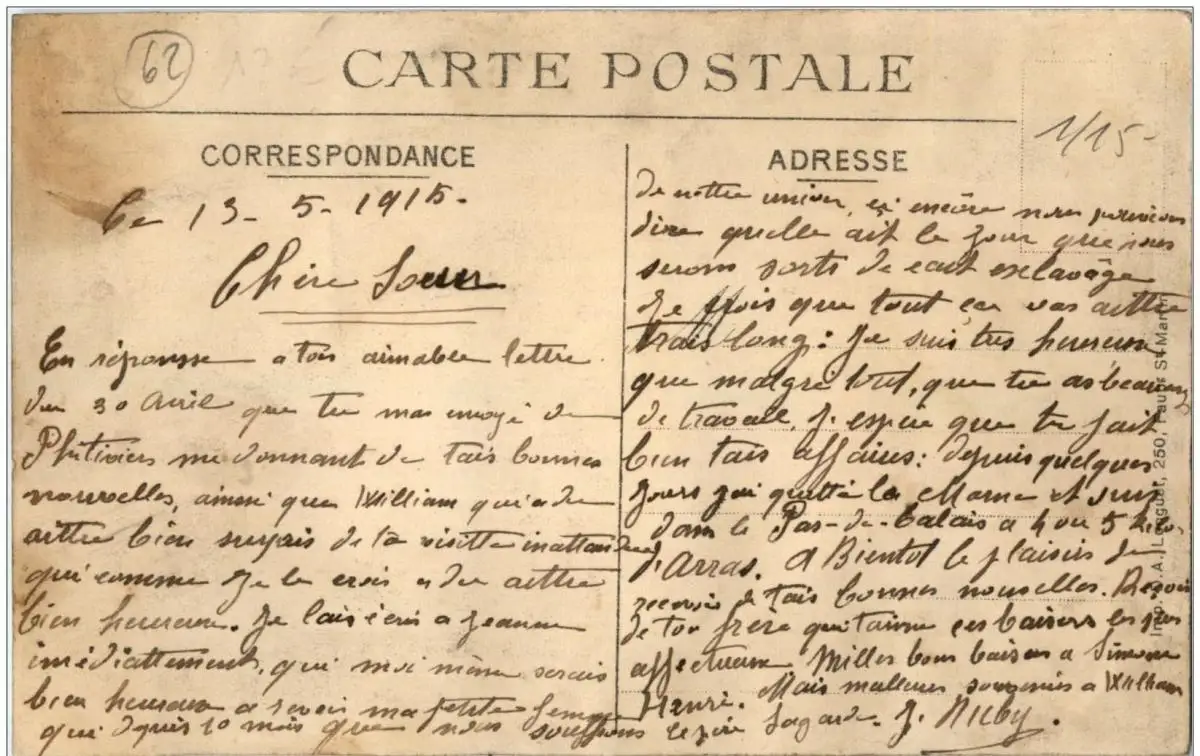 62
CARTE POSTALE
1/15-
CORRESPONDANCE
Ce 13 - 5 - 1915.
Chère Soeur
En réponsse a tois aimable lettre
du 30 Avril que tu mas envoyé de
Phitiviers me donnant de tais bonnes
nouvelles, ainssi que William qui a du
aittre bien surpris de ta visitte inattandue
qui comme Je le crois a du aittre
bien heureux. Je lais écris a Jeanne
imédiattement, qui moi même serais
bien heureux a revoir ma petite femme
qui depuis 10 mois que nous souffrons
ADRESSE
de nottre union, si encore nous pouvions
dire quelle ait le Jour que nous
serons sorts de cait esclavâge
Je vois que tout ça vas aittre
trais long : Je suis très heureux
que malgré tout, que tu as beaucoup
de travaille, Je espère que tu fait
bien tais affaires : depuis quelques
Jours Jai quitté la Marne et suis
dans le Pas-de-Calais a 4 ou 5 kilo
d'Arras. A Bientot le plaisir de
recevoir de tais bonnes nouvelles. Reçois
de ton frère qui taime ces baisers les plus
affectueux Milles bons baisers a Simone
Henri. Mais malleurs souvenirs a William
le père Lagarde. J.
Imp. A. Longuet, 250, Faub. St-Martin